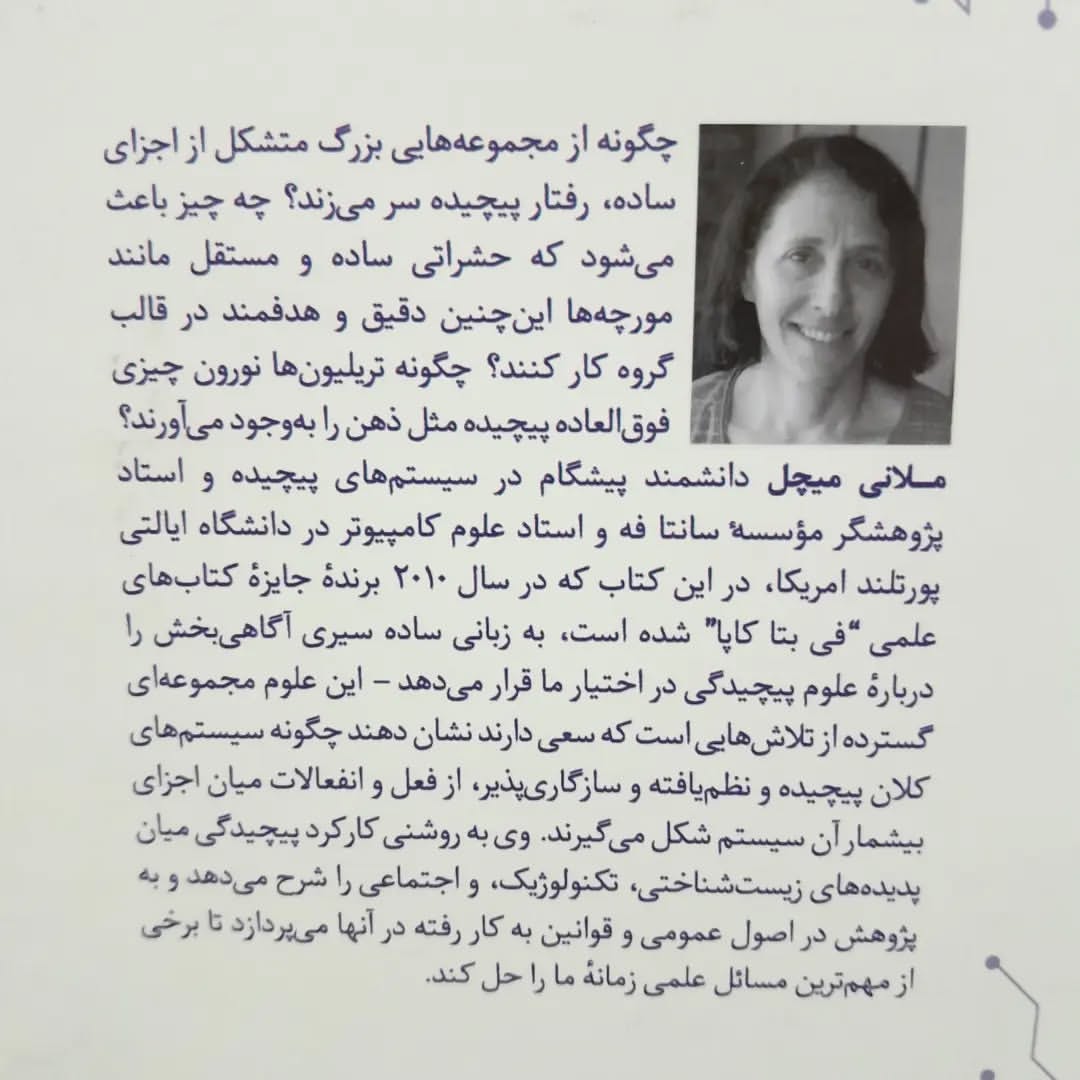 چگونه از مجموعه‌هایی بزرگ متشکل از اجزای
ساده، رفتار پیچیده سر می‌زند؟ چه چیز باعث
می‌شود که حشراتی ساده و مستقل مانند
مورچه‌ها این‌چنین دقیق و هدفمند در قالب
گروه کار کنند؟ چگونه تریلیون‌ها نورون چیزی
فوق‌العاده پیچیده مثل ذهن را به‌وجود می‌آورند؟
مـلانی میچل دانشمند پیشگام در سیستم‌های پیچیده و استاد
پژوهشگر مؤسسهٔ سانتا فه و استاد علوم کامپیوتر در دانشگاه ایالتی
پورتلند امریکا، در این کتاب که در سال ۲۰۱۰ برندهٔ جایزهٔ کتاب‌های
علمی “فی بتا کاپا” شده است، به زبانی ساده سیری آگاهی‌بخش را
دربارهٔ علوم پیچیدگی در اختیار ما قرار می‌دهد – این علوم مجموعه‌ای
گسترده از تلاش‌هایی است که سعی دارند نشان دهند چگونه سیستم‌های
کلان پیچیده و نظم‌یافته و سازگاری‌پذیر، از فعل و انفعالات میان اجزای
بیشمار آن سیستم شکل می‌گیرند. وی به روشنی کارکرد پیچیدگی میان
پدیده‌های زیست‌شناختی، تکنولوژیک، و اجتماعی را شرح می‌دهد و به
پژوهش در اصول عمومی و قوانین به کار رفته در آنها می‌پردازد تا برخی
از مهم‌ترین مسائل علمی زمانهٔ ما را حل کند.